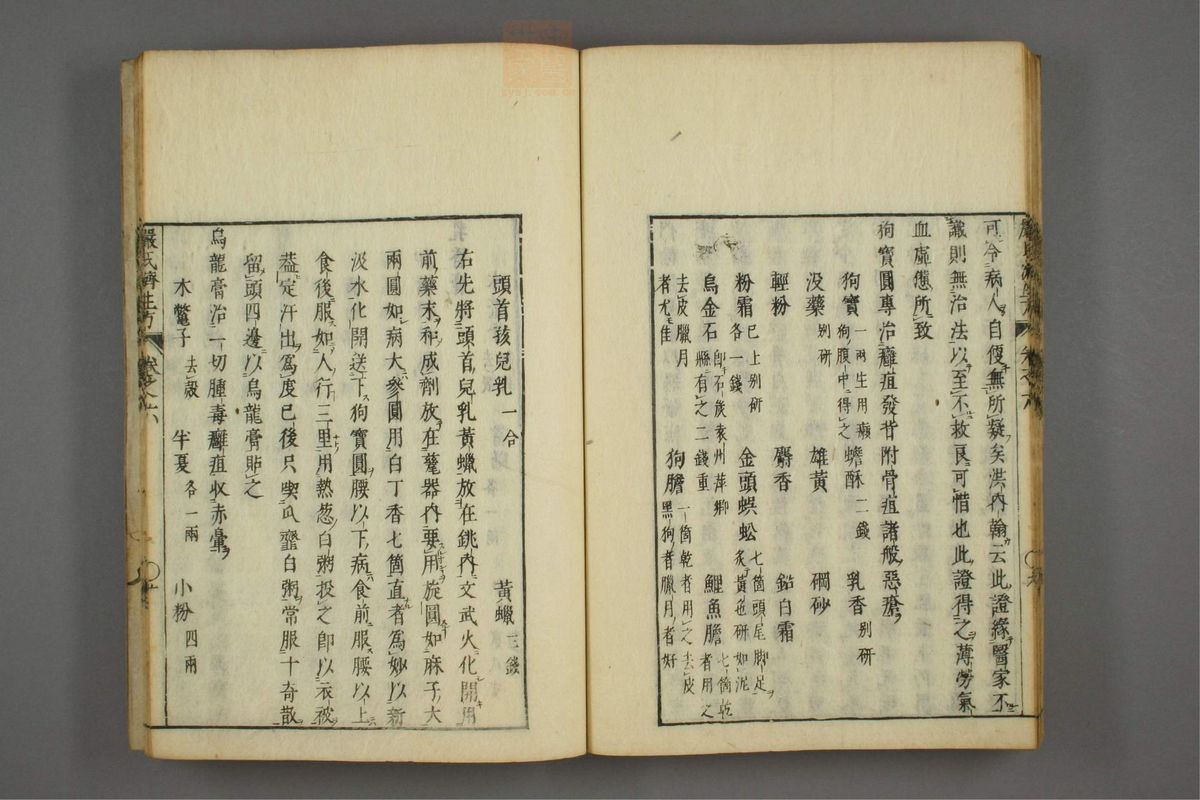 可令病人自便無所疑矣洪內翰云此證緣醫家不
識則無治法以至不救良可惜也此證得之薄勞氣
血虛憊所致
狗寶圓專治癰疽發背附骨疽諸般惡瘡
狗寶一兩生用癩狗腹中得之 蟾酥二錢 乳香別研
沒藥別研 雄黃 硇砂
輕粉 麝香 鉛白霜
粉霜已上別研各一錢 金頭蜈蚣七箇頭尾脚足炙黃也研如泥
烏金石即石炭袁州萍鄉縣有之二錢重 鯉魚膽七箇乾者用之
去皮臘月者尤佳 狗膽一箇乾者用之去皮黑狗者臘月者好
頭首孩兒乳一合 黃蠟三錢
右先將頭首兒乳黃蠟放在銚內文武火化開用
前藥末和成劑放在甆器內要用旋圓如麻子大
兩圓如病大參圓用白丁香七箇直者為妙以新
汲水化開送下狗寶圓腰以下病食前服腰以上
食後服如人行三里用熱葱白粥投之即以衣被
蓋定汗出為度已後只喫瓜虀白粥常服十奇散
留頭四邊以烏龍膏貼之
烏龍膏治一切腫毒癰疽收赤暈
木鱉子去殼 半夏各一兩 小粉四兩
嚴氏濟生方 卷之六